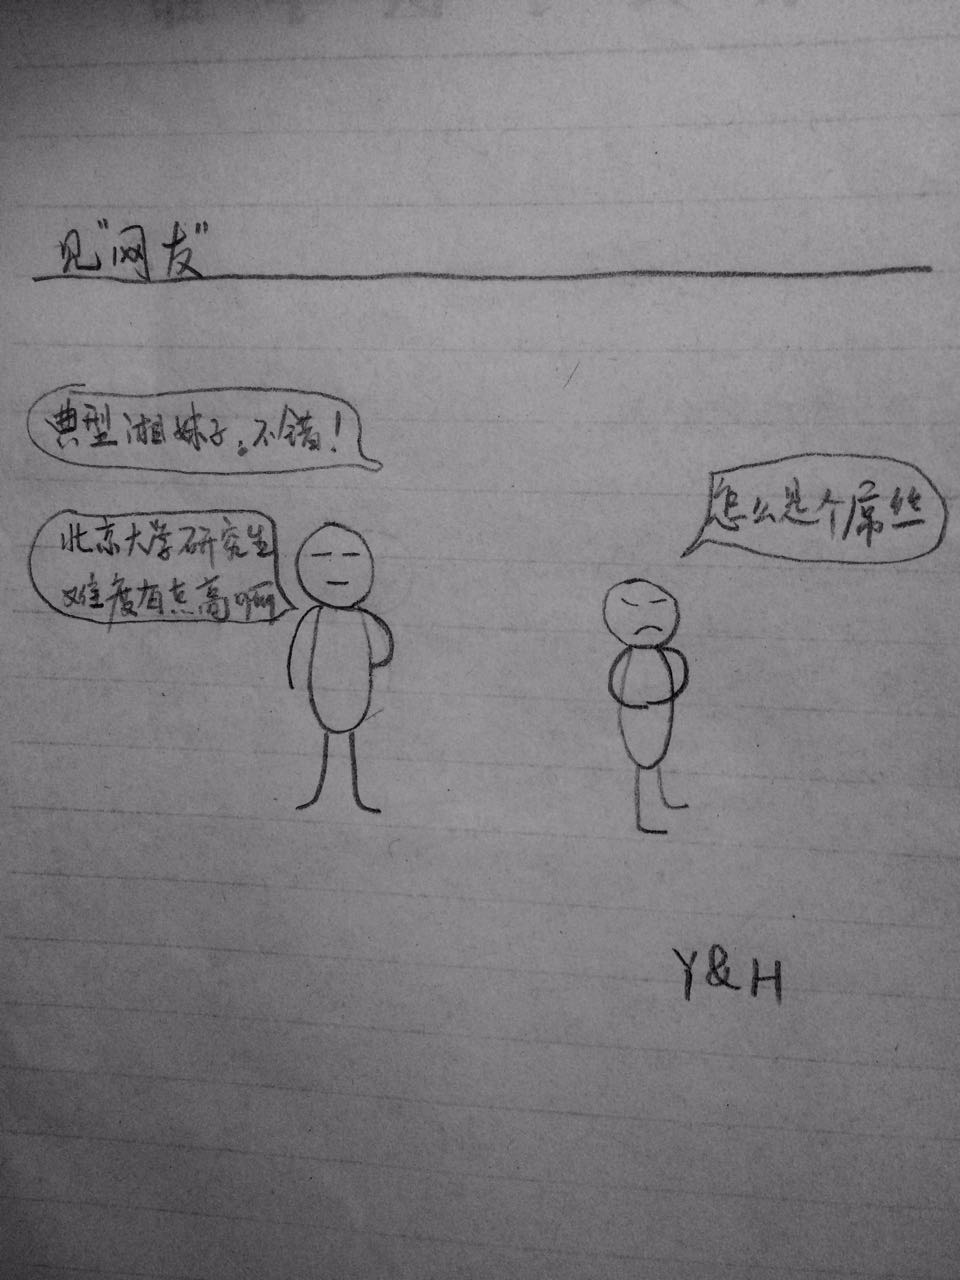 见"网友"
典型湘妹子。不错！
北京大学研究生
难度有点高啊
怎么是个屌丝
Y&H